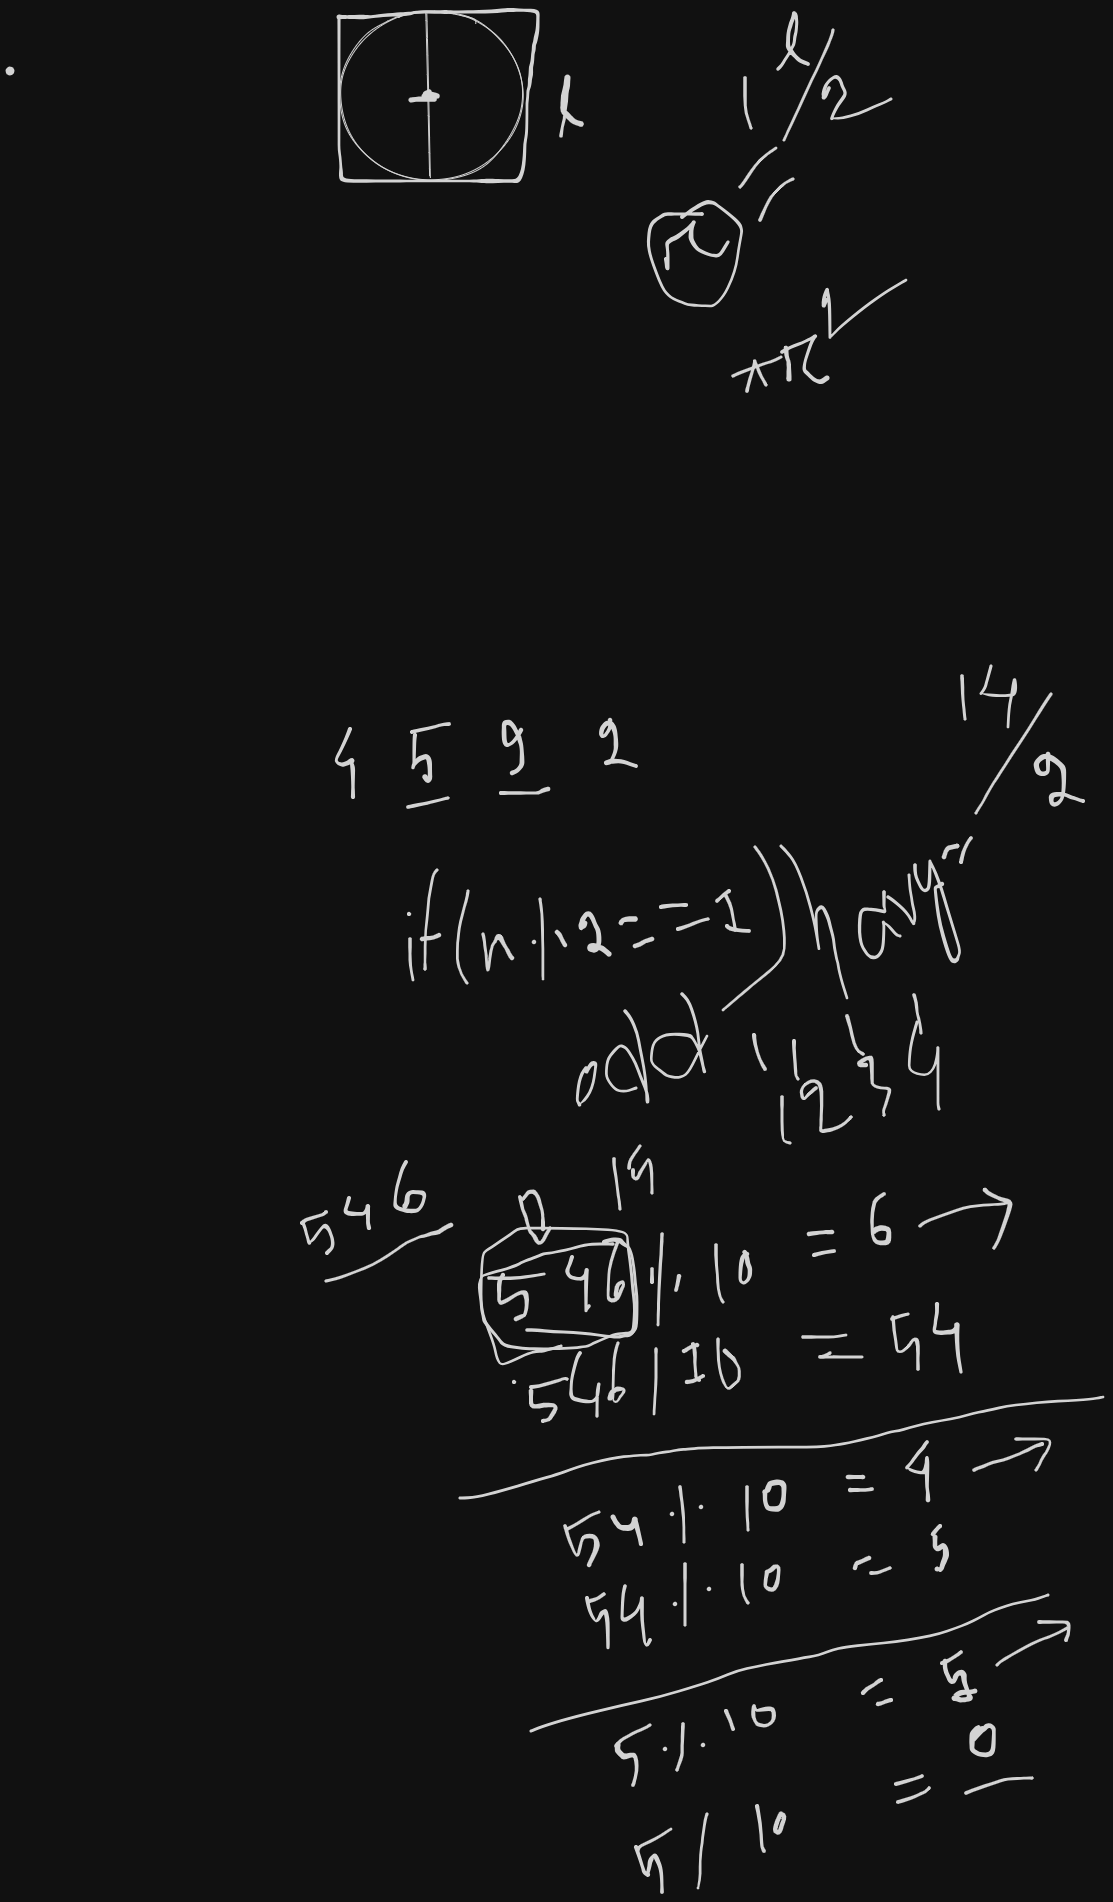 l
l/2
=
r
πr²
4 5 9 2
14/2
if(n%2==1)
odd
1234
546
n
546%10 = 6 →
546/10 = 54
54%10 = 4 →
54%10 = 5
5%10 = 5 →
5/10 = 0